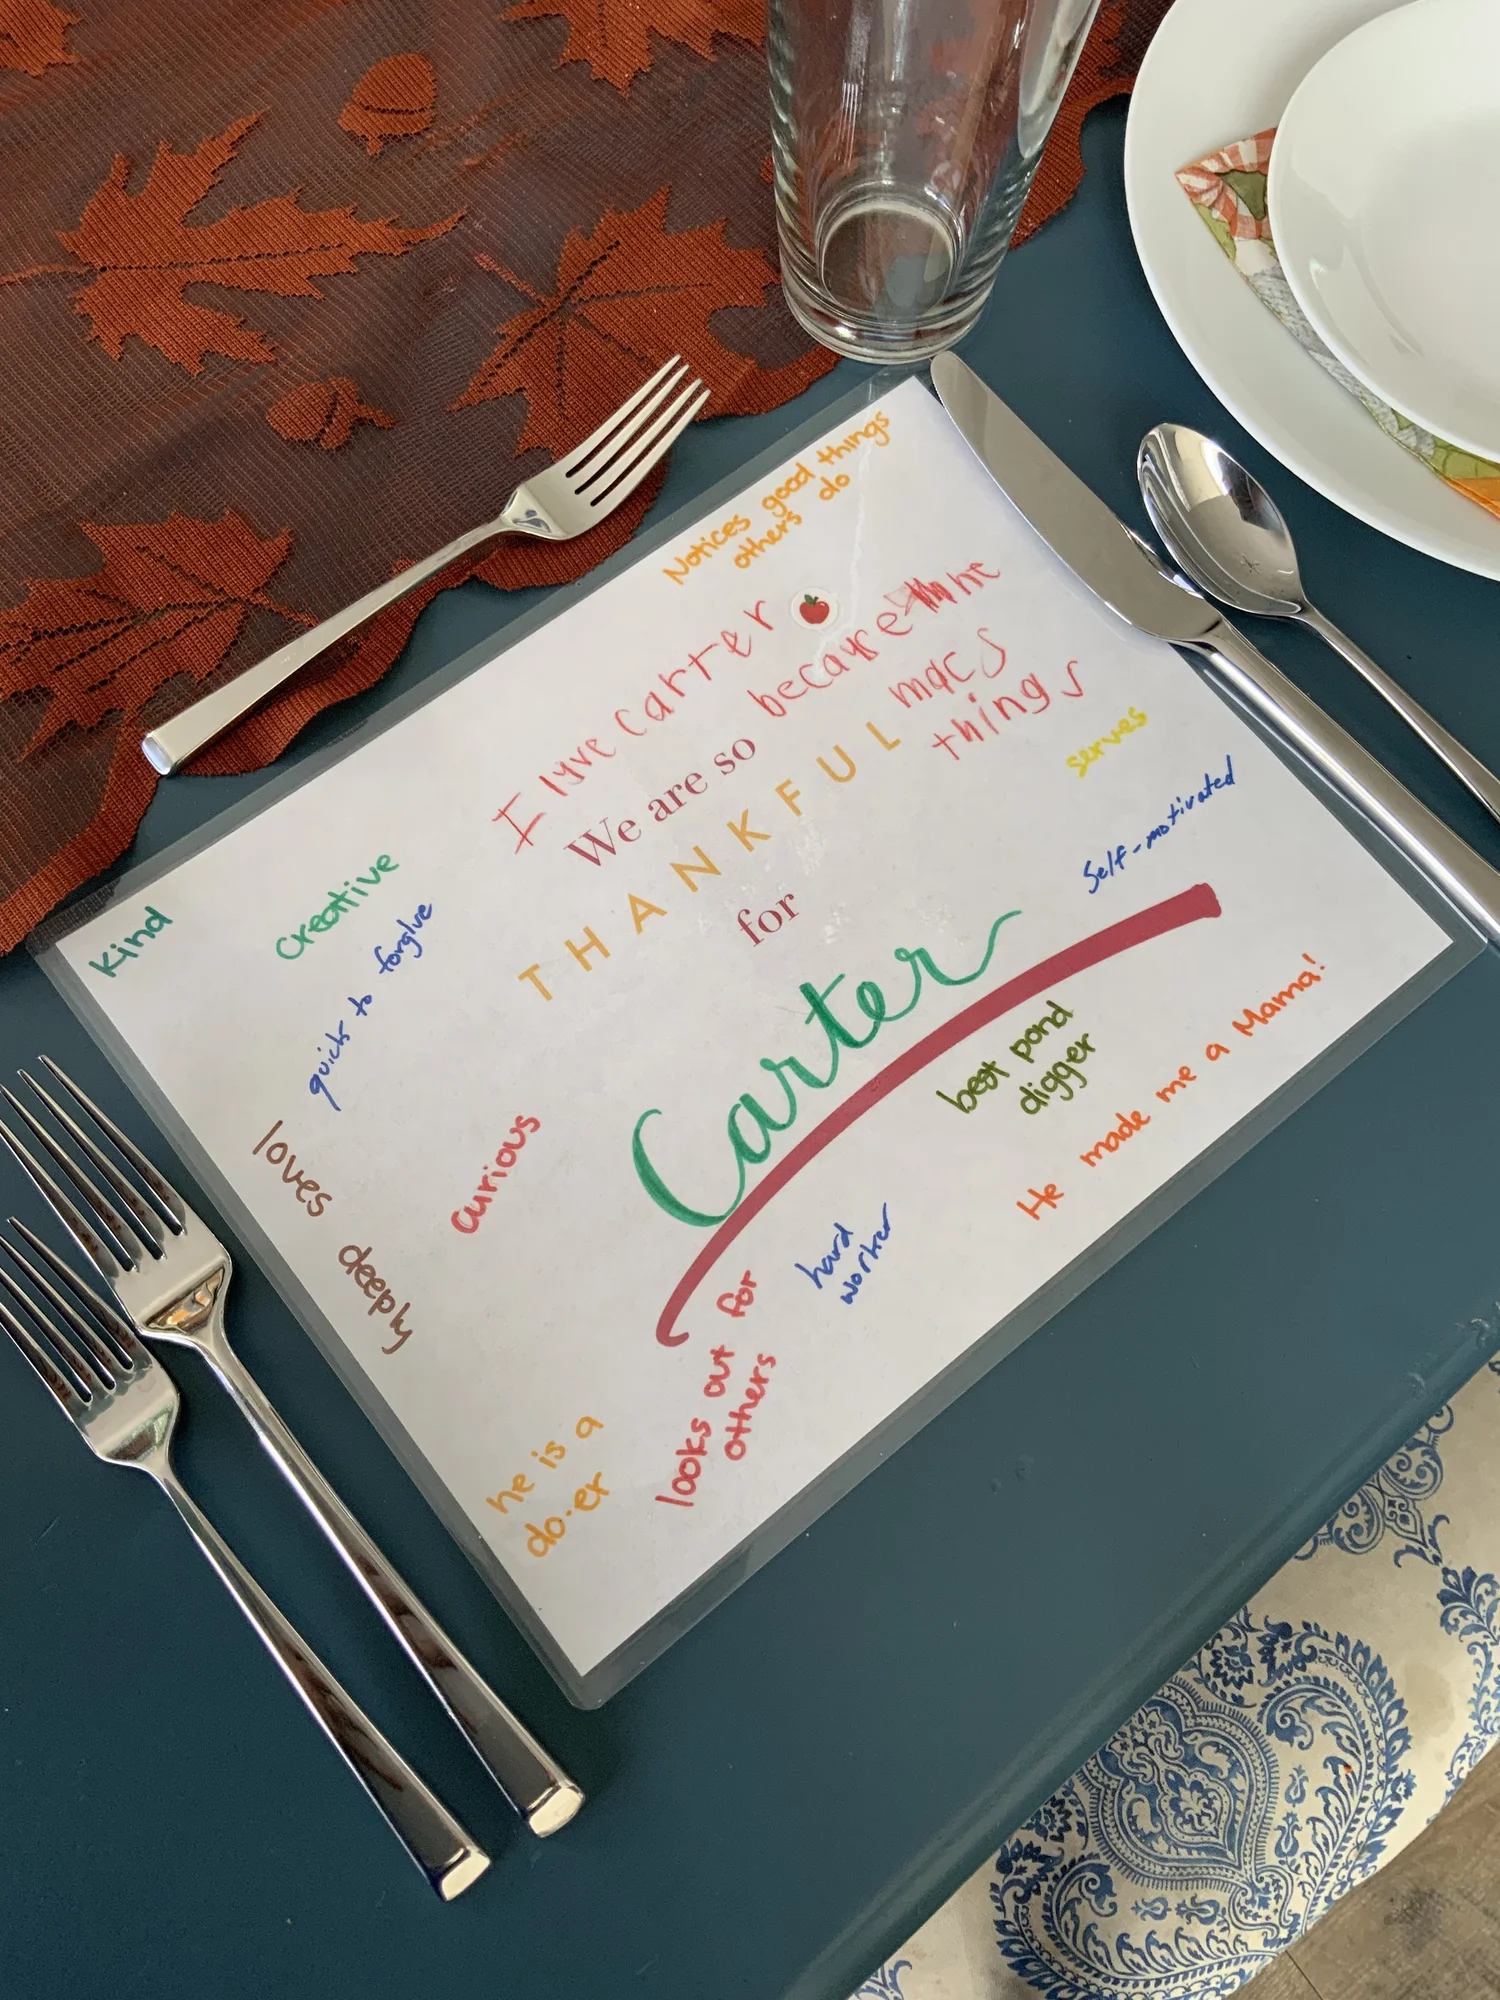 Notices good things
others do
I lyve carter
because he
macs
things
We are so
THANKFUL
for
Carter
serves
Self-motivated
Kind
Creative
quick to forgive
loves deeply
Curious
best pond
digger
He made me a Mama!
hard
worker
looks out for
others
he is a
do.er